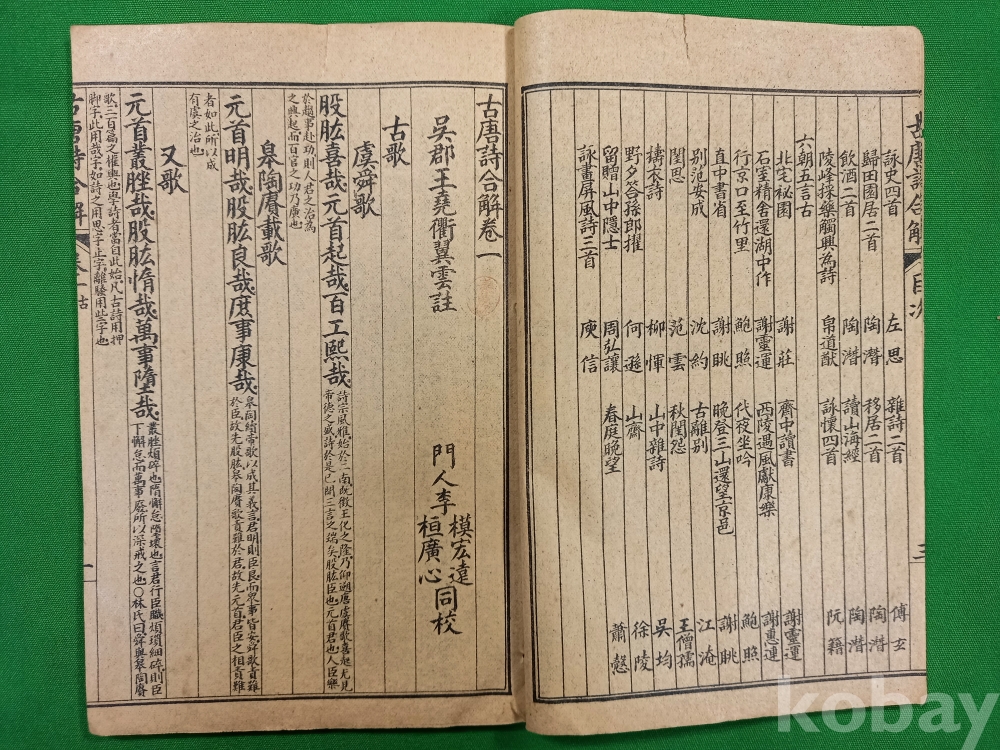 古唐詩合解 目次 三
詠史四首 左思 雜詩二首 傅玄
歸田園居二首 陶潛 移居二首 陶潛
飲酒二首 陶潛 讀山海經 陶潛
陵峰採藥觸興為詩 帛道猷 詠懷四首 阮籍
六朝五言古
北宅秘園 謝莊 齋中讀書 謝靈運
石室精舍還湖中作 謝靈運 西陵遇風獻康樂 謝惠連
行京口至竹里 鮑照 代夜坐吟 鮑照
直中書省 謝眺 晚登三山還望京邑 謝眺
别范安成 沈約 古離别 江淹
閨思 范雲 秋閨怨 王僧孺
擣衣詩 柳惲 山中雜詩 吳均
野夕答孫郎擢 何遜 山齋 徐陵
留贈山中隱士 周弘讓 春庭晚望 蕭慤
詠畫屏風詩三首 庾信
古唐詩合解卷一
吳郡王堯衢翼雲註 門人李 模宏遠 桓廣心 同校
古歌
虞舜歌
股肱喜哉元首起哉百工熙哉
詩宗風雅始於二南既徵王化之隆乃仰朔唐虞賡歌喜起尤見
帝德之盛詩於是已開三言之端矣股肱臣也元首君也人臣樂
於趨事赴功則人君之治為
之興起而百官之功乃廣也
皋陶賡載歌
元首明哉股肱良哉庶事康哉
皋陶續帝歌以成其義言君明則臣良而眾事皆安舜歌責難
於臣故先股肱皋陶賡歌責難於君故先元首君臣之相責難
者如此所以成
有虞之治也
又歌
元首叢脞哉股肱惰哉萬事墮哉
叢脞煩碎也惰懈怠墮壞也言君行臣職煩瑣細碎則臣
下懈怠而萬事廢所以深戒之也〇林氏曰舜與皋陶賡
歌三百篇之權輿也學詩者當自此始凡古詩用押
脚字此用哉字如詩之用思字止字離騷用些字也
古唐詩合解 卷一古 一
kobay